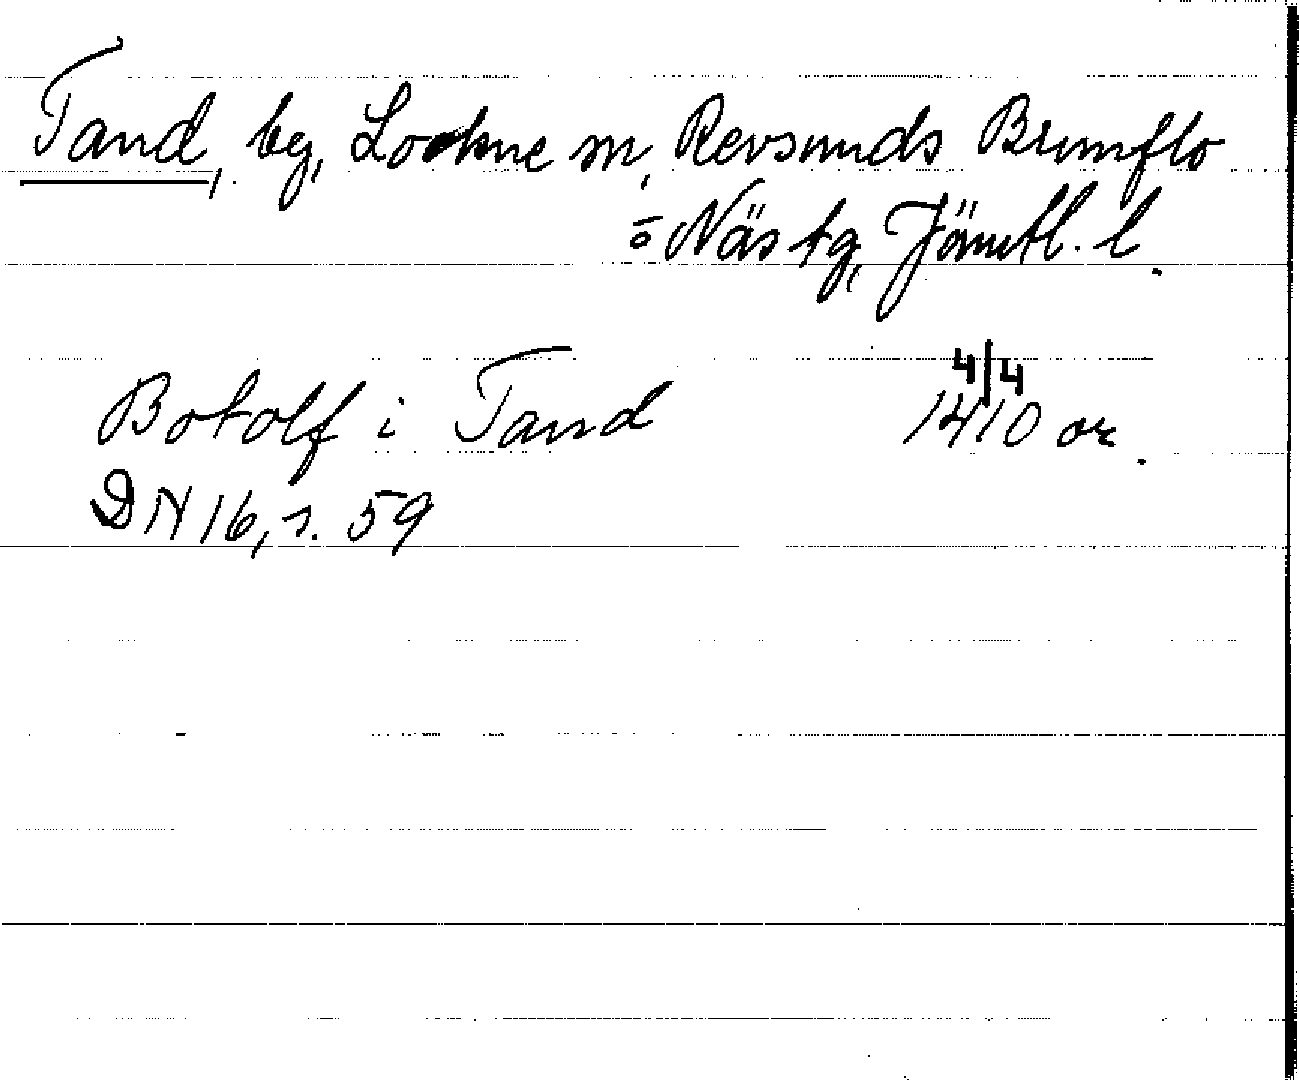 Tand, by, Lockne sn, Revsunds Brunflo
o Näs tg, Jämtl. l.
Botolf i Tand 4/4 1410 or.
DN 16, s. 59